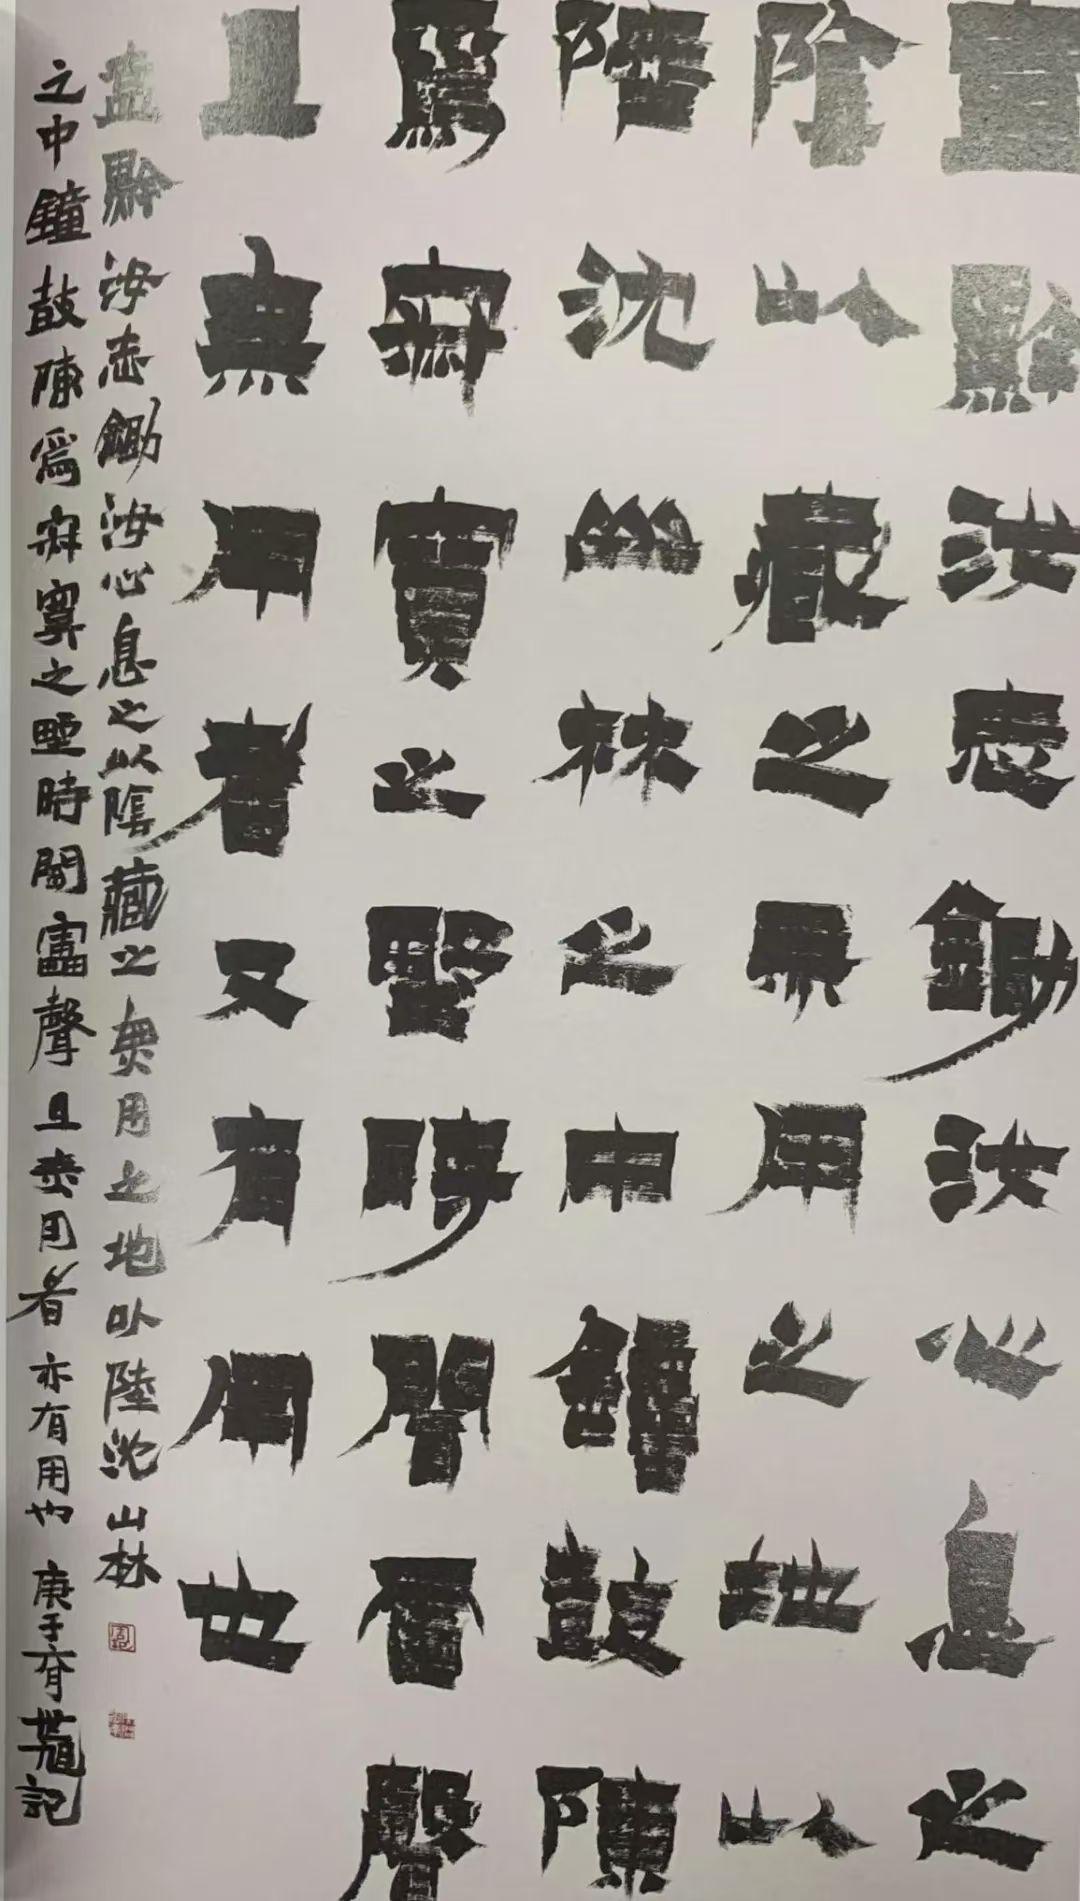 盍黔汝志鋤汝心息之
陰以藏之無用之地以
陸沈山林之中鐘鼓陳
爲寂寞之野時聞雷聲
且無用者又有用也
盍黔汝志鋤汝心息之以陰藏之無用之地以陸沈山林
之中鐘鼓陳爲寂寞之野時聞雷聲且無用者亦有用也 庚子 記